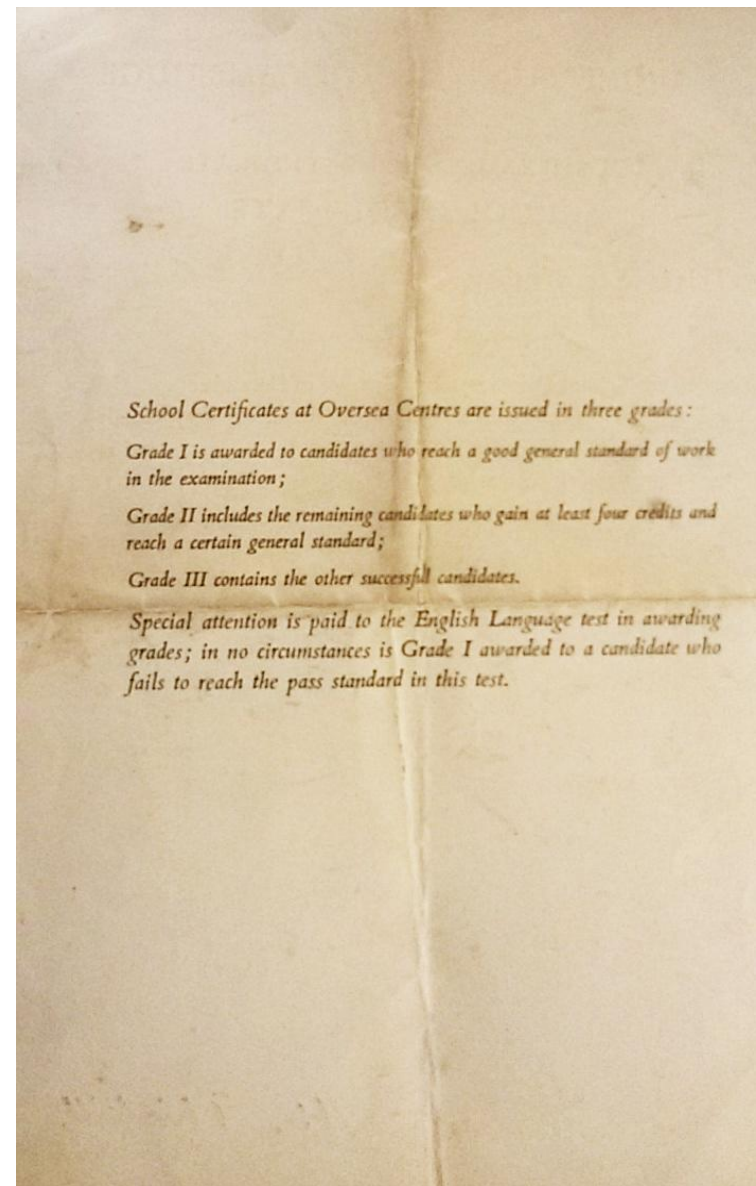 School Certificates at Oversea Centres are issued in three grades:
Grade I is awarded to candidates who reach a good general standard of work
in the examination;
Grade II includes the remaining candidates who gain at least four credits and
reach a certain general standard;
Grade III contains the other successful candidates.
Special attention is paid to the English Language test in awarding
grades; in no circumstances is Grade I awarded to a candidate who
fails to reach the pass standard in this test.